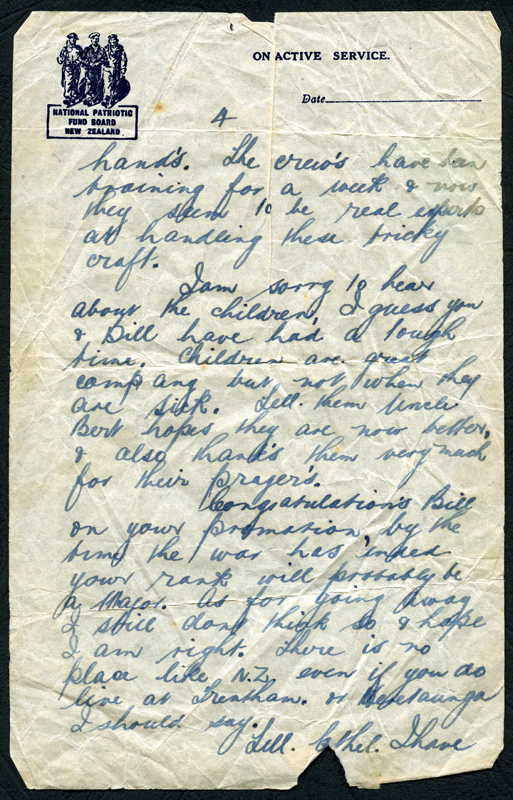 ON ACTIVE SERVICE.
Date
NATIONAL PATRIOTIC
FUND BOARD
NEW ZEALAND
4
hand's. The crew's have ban
training for a week & now
they seem to be real experts
at handling these tricky
craft.
I am sorry to hear
about the children, I guess you
& Bill have had a tough
time. Children are great
comp any but not when they
are sick. Tell them Uncle
Bert hopes they are now better,
& also thank's them very much
for their prayer's.
Congratulation's Bill
on your promation, by the
time the war has inded
your rank will probably be
a Major. As for going away
I still dont think so & hope
I am right. There is no
place like N.Z. even if you do
live at Trentham. or Heretaunga
I should say.
Tell. Ethel. I have